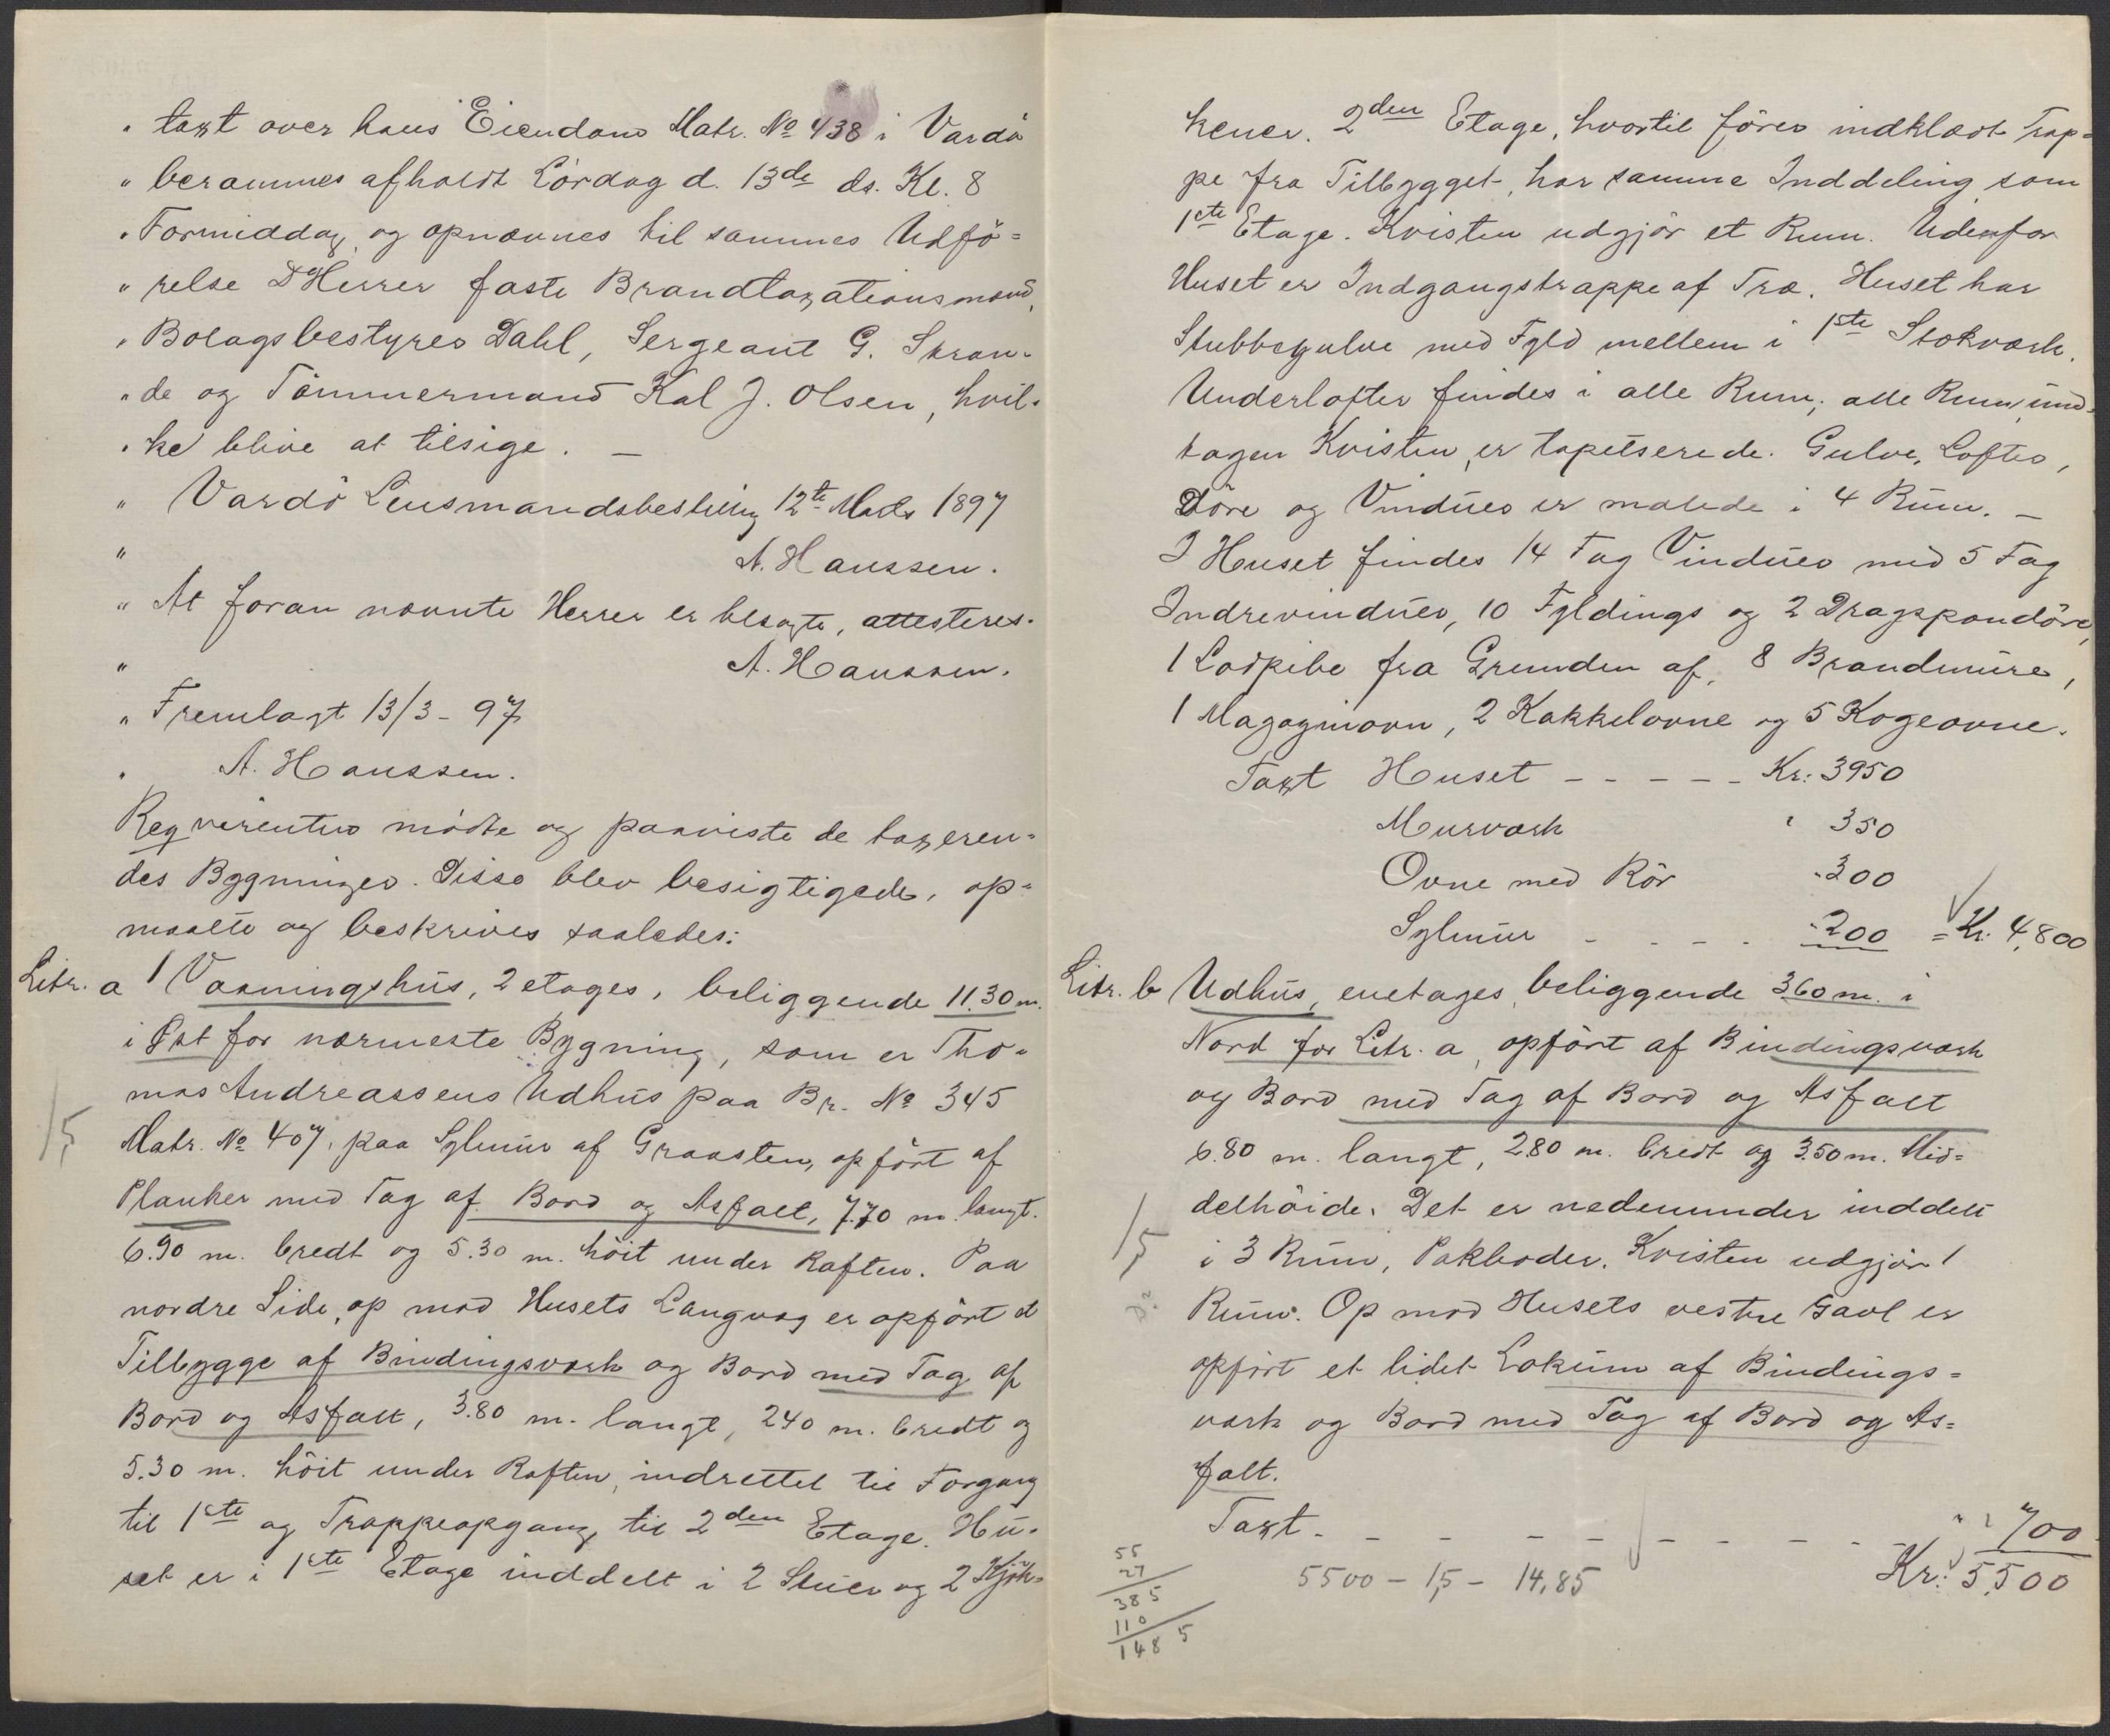 " taxt over hans Eiendom Matr. No 438 i Vardö
" berammes afholdt Lördag d. 13de ds. Kl. 8
" Formiddag, og opnævnes til sammes Udfö=
" relse D'Herrer faste Brandtaxationsmænd,
" Bolagsbestyrer Dahl, Sergeant G. Skran-
" de og Tömmermand Kal J. Olsen, hvil-
" ke blive at tilsige. —
" Vardö Lensmandsbestilling 12te Marts 1897
" A. Hanssen.
" At foran nævnte Herrer er besagte, attesteres.
" A. Hanssen.
" Fremlagt 13/3 - 97
" A. Hanssen.
Reqvirenten mödte og paaviste de taxeren-
des Bygninger. Disse blev besigtigede, op=
maalte og beskrives saaledes:
Litr. a 1 Vaaningshus, 2 etages, beliggende 11.30 m.
i Öst for nærmeste Bygning, som er Tho-
mas Andreassens Udhus paa Br. No 345
Matr. No 407, paa Sylmur af Graasten, opfört af
1,5
Planker med Tag af Bord og Asfalt, 7.70 m. langt.
6.90 m. bredt og 5.30 m. höit under Raften. Paa
nordre Side, op mod Husets Langvæg er opfört et
Tilbygge af Bindingsværk og Bord med Tag af
Bord og Asfalt, 3.80 m. langt, 2.40 m. bredt og
5.30 m. höit under Raften, indrettet til Forgang
til 1ste og Trappeopgang til 2den Etage. Hu-
set er i 1ste Etage inddelt i 2 Stuer og 2 Kjök=
kener. 2den Etage, hvortil förer indklædt Trap=
pe fra Tilbygget, har samme Inddeling som
1ste Etage. Kvisten udgjör et Rum. Udenfor
Huset er Indgangstrappe af Træ. Huset har
Stubbegulve med Fyld mellem i 1ste Stokværk.
Underlofter findes i alle Rum; alle Rum, und-
tagen Kvisten, er tapetserede. Gulve, Lofter,
Döre og Vinduer er malede i 4 Rum. —
I Huset findes 14 Fag Vinduer med 5 Fag
Indrevinduer, 10 Fyldings og 2 Dragspondöre,
1 Lodpibe fra Grunden af, 8 Brandmure,
1 Magazinovn, 2 Kakkelovne og 5 Kogeovne.
Taxt Huset - - - - - Kr: 3950
Murværk " 350
Ovne med Rör " 300
Sylmur - - - - " 200 = Kr. 4,800
Litr. b Udhus, enetages, beliggende 3.60 m. i
Nord for Litr. a, opfört af Bindingsværk
og Bord med Tag af Bord og Asfalt
6.80 m. langt, 2.80 m. bredt og 3.50 m. Mid=
delhöide. Det er nedenunder inddelt
1,5
i 3 Rum, Pakboder. Kvisten udgjör 1
Rum. Op mod Husets vestre Gavl er
opfört et lidet Lokum af Bindings=
værk og Bord med Tag af Bord og As=
falt.
Taxt - - - - - - - - - " " 700
Kr: 5,500
5500 - 1,5 - 14,85
55
27
385
110
1485